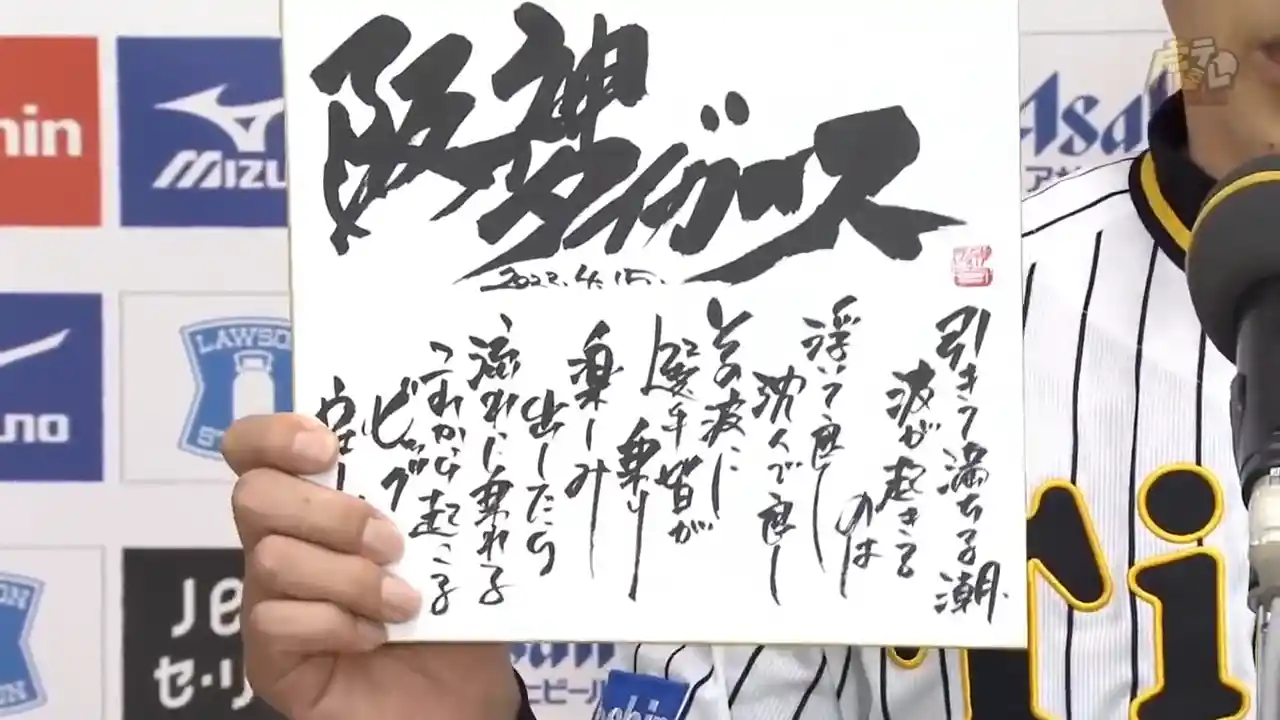 阪神
タイガース
2022.4.15.
引きて満ちる潮
波が起きる
のは
浮いて良し
沈んで良し
その波に
選手皆が
乗り
楽しみ
出したら
流れに乗れる
これから起こる
ビッグ
ウェー
hin
MIZU
Asah
アサ
UNO
LAWSON
ST
SON
ON
Je
セ・リ
Asahi
ヒビール
ri
虎テレ